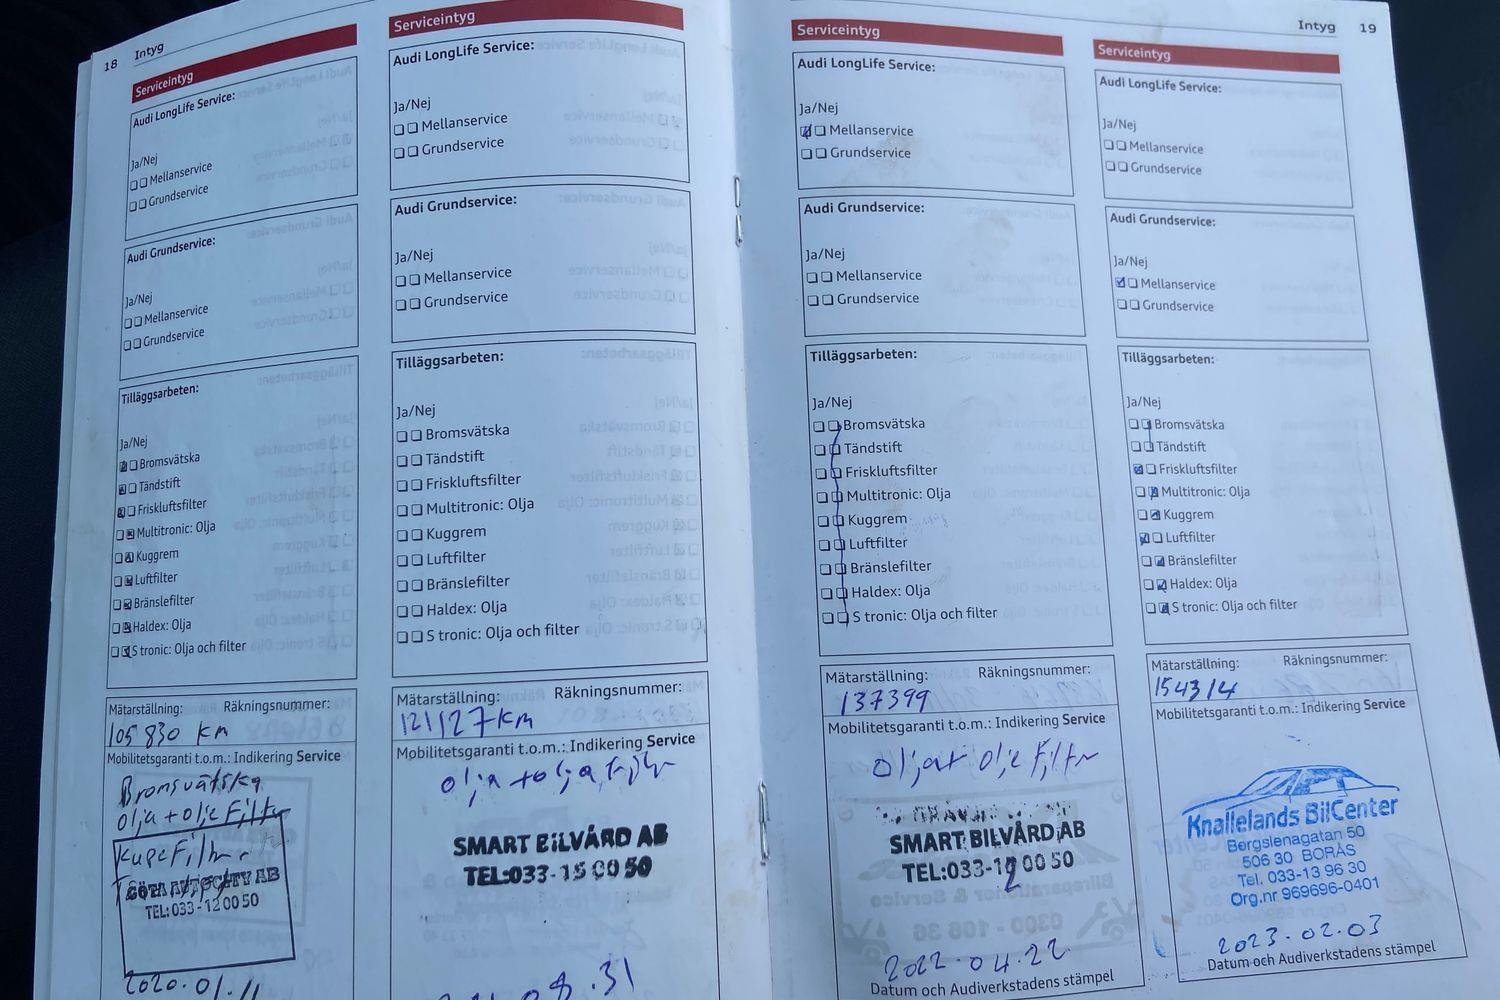 18 Intyg
Serviceintyg
Audi LongLife Service:
Ja/Nej
Mellanservice
Grundservice
Audi Grundservice:
Ja/Nej
Mellanservice
Grundservice
Tilläggsarbeten:
Ja/Nej
Bromsvätska
Tändstift
Friskluftsfilter
Multitronic: Olja
Kuggrem
Luftfilter
Bränslefilter
Haldex: Olja
S tronic: Olja och filter
Mätarställning: Räkningsnummer:
105 830 km
Mobilitetsgaranti t.o.m.: Indikering Service
Bromsvätska
olja + olje Filter
KupeFilter
GÖTA AUTOCITY AB
TEL:033-12 00 50
2020.01.11
Serviceintyg
Audi LongLife Service:
Ja/Nej
Mellanservice
Grundservice
Audi Grundservice:
Ja/Nej
Mellanservice
Grundservice
Tilläggsarbeten:
Ja/Nej
Bromsvätska
Tändstift
Friskluftsfilter
Multitronic: Olja
Kuggrem
Luftfilter
Bränslefilter
Haldex: Olja
S tronic: Olja och filter
Mätarställning: Räkningsnummer:
121127 km
Mobilitetsgaranti t.o.m.: Indikering Service
olja + olja filter
SMART BILVÅRD AB
TEL:033-15 00 50
08.31
Intyg 19
Serviceintyg
Audi LongLife Service:
Ja/Nej
Mellanservice
Grundservice
Audi Grundservice:
Ja/Nej
Mellanservice
Grundservice
Tilläggsarbeten:
Ja/Nej
Bromsvätska
Tändstift
Friskluftsfilter
Multitronic: Olja
Kuggrem
Luftfilter
Bränslefilter
Haldex: Olja
S tronic: Olja och filter
Mätarställning: Räkningsnummer:
137399
Mobilitetsgaranti t.o.m.: Indikering Service
olja + olje filter
SMART BILVÅRD AB
TEL:033-12 00 50
2022.04.22
Datum och Audiverkstadens stämpel
Serviceintyg
Audi LongLife Service:
Ja/Nej
Mellanservice
Grundservice
Audi Grundservice:
Ja/Nej
Mellanservice
Grundservice
Tilläggsarbeten:
Ja/Nej
Bromsvätska
Tändstift
Friskluftsfilter
Multitronic: Olja
Kuggrem
Luftfilter
Bränslefilter
Haldex: Olja
S tronic: Olja och filter
Mätarställning: Räkningsnummer:
154314
Mobilitetsgaranti t.o.m.: Indikering Service
Knallelands BilCenter
Bergslenagatan 50
506 30 BORÅS
Tel. 033-13 96 30
Org.nr 969696-0401
2023.02.03
Datum och Audiverkstadens stämpel